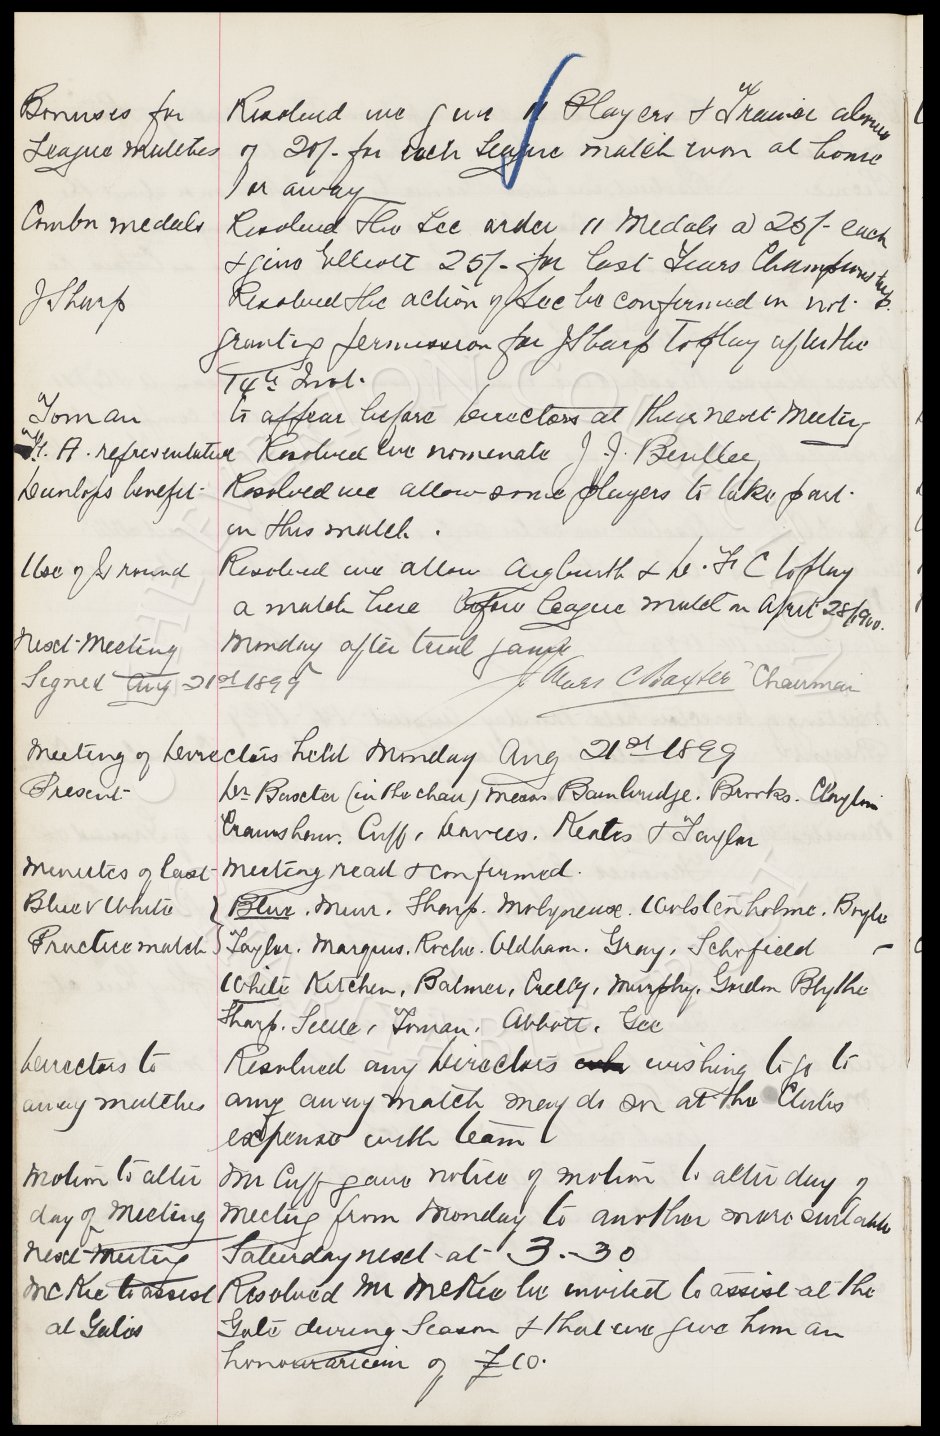 Bonuses for Resolved we give 11 Players & Trainer a bonus
League Matches of 20/- for each League match won at home
or away
Combn medals Resolved the Sec order 11 Medals @ 25/- each
& give Elliott 25/- for last Years Championship.
J Sharp Resolved the action of Sec be confirmed in not
granting permission for J Sharp to play after the
14th Inst.
Toman to appear before Directors at their next Meeting
F. A. representative Resolved we nomenate J. J. Bentley
Dunlops benefit Resolved we allow some players to take part
in this match.
Use of Ground Resolved we allow Aigburth & L. F C to play
a match here before league match on April 28/1900.
Next Meeting Monday after trial game
Signed Aug 21st 1899 James C Baxter Chairman
Meeting of Directors held Monday Aug 21st 1899
Present Dr Baxter (in the chair) Messrs Bainbridge. Brooks. Clayton
Crawshaw. Cuff, Davies. Keates & Taylor
Minutes of last Meeting read & confirmed.
Blue v White Blue. Muir. Sharp. Molyneux. Wolstenholme. Boyle
Practice match Taylor. Marquis. Roche. Oldham. Gray, Schofield
White Kitchen, Balmer, Crelly, Murphy. Gordon Blythe
Sharp. Settle, Toman. Abbott. Gee
Directors to Resolved any Directors wishing to go to
away matches any away match may do so at the Clubs
expense with team
Motion to alter Mr Cuff gave notice of motion to alter day of
day of Meeting Meeting from Monday to another more suitable
Next Meeting Saturday next at 3.30
McKee to assist Resolved Mr McKee be invited to assist at the
at Gates Gate during Season & that we give him an
honourarium of £10.